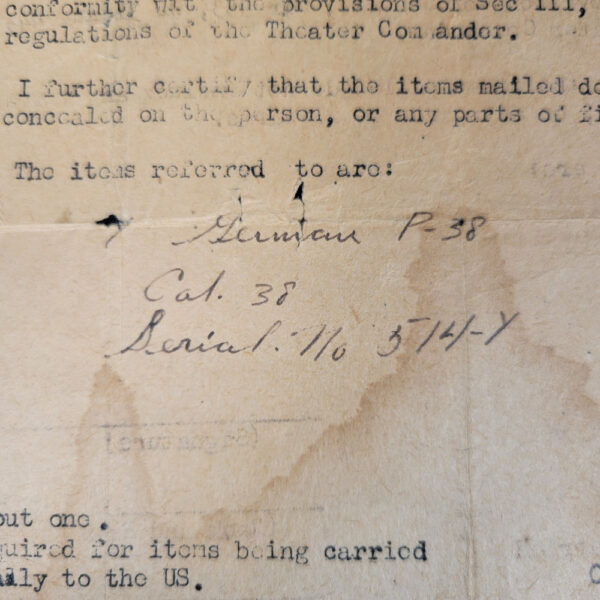 conformity wit the provisions of Sec III,
regulations of the Theater Com ander.
I further certify that the items mailed do
concealed on the person, or any parts of fi
The items referred to are:
German P-38
Cal. 38
Serial. No 514-Y
(Signature)
out one.
quired for items being carried
ally to the US.